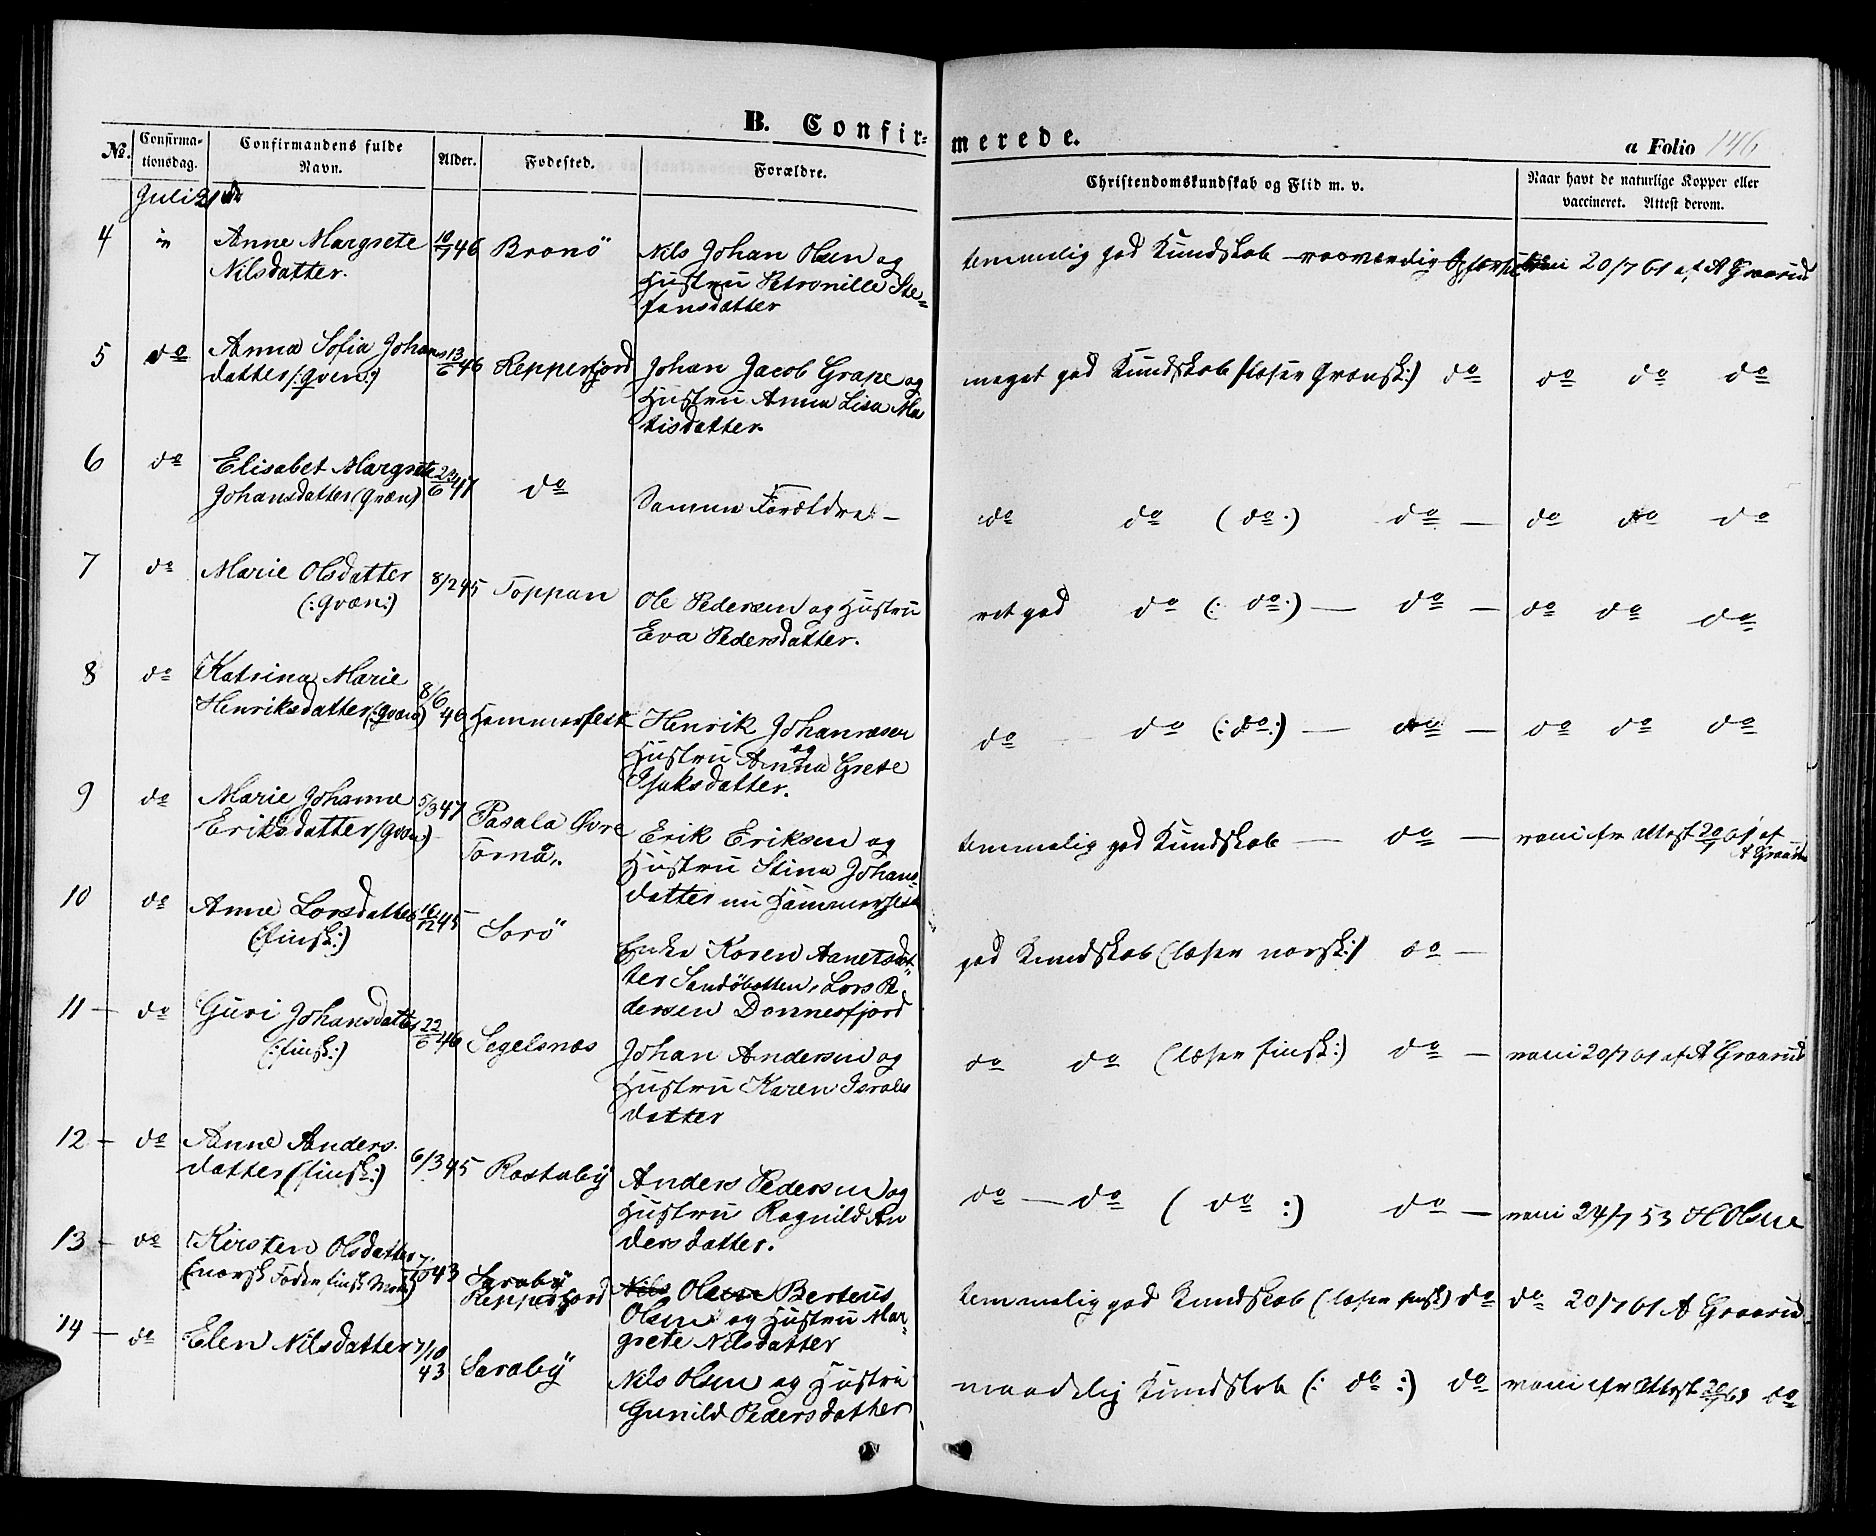 B. Confir=
merede.
a Folio 146
No.
Confirma-
tionsdag.
Confirmandens fulde
Navn.
Alder.
Fødested.
Forældre.
Christendomskundskab og Flid m. v.
Naar havt de naturlige Kopper eller
vaccineret. Attest derom.
Juli 21
4
Anne Margrete
Nilsdatter.
10/7 46
Bronö
Nils Johan Olsen og
Hustru Petronille Ste=
fansdatter
temmelig god Kundskab
20/7 61 af A Graarud
5
do
Anna Sofia Johans
datter (:Qven:)
13/6 46
Repperfjord
Johan Jacob Grape og
Hustru Anna Lisa Ma
tisdatter.
meget god Kundskab (læser Qvænsk:) do
do do do
6
do
Elisabet Margrete
Johansdatter (Qvæn)
47
do
Samme Forældre –
do do (do:) do —
do do do
7
do
Marie Olsdatter
(:Qvæn:)
8/2 45
Toppan
Ole Pedersen og Hustru
Eva Pedersdatter.
ret god do (: do:) — do —
do do do
8
do
Katrina Marie
Henriksdatter (:Qvæn)
8/6 46
Hammerfest
Henrik Johannesen
og
Hustru Anna Grete
Isaksdatter.
do do (:do:) — do —
do do do
9
do
Marie Johanne
Eriksdatter (Qvæn)
5/3 47
Pasala Övre
Tornå..
Erik Eriksen og
Hustru Stina Johans=
datter nu Hammerfest
temmelig god Kundskab — do —
vacci efr Attest 20/7 61 af
A Graarud
10
do
Anne Larsdatter
(:finsk:)
16/12 45
Sorö
Enke Karen Aanetsdat=
ter Sandöbotten, Lars Pe
dersen Donnesfjord
god Kundskab (læser norsk:) do —
11 —
do
Guri Johansdatter
(:finsk:)
22/6 46
Segelsnæs
Johan Andersen og
Hustru Karen Israels
datter
do do (læser finsk:) do —
vacci 20/7 61 af A Graarud
12 —
do
Anne Anders-
datter (finsk:)
6/3 45
Rastaby
Anders Pedersen og
Hustru Ragnild An
dersdatter.
do — do ( do :) do —
vacci 24/7 53 H Olsen
13 —
do
Kirsten Olsdatter
(norsk Fader finsk Moder)
7/10 43
Saraby
Repperfjord
Nils Olsen Berteus
Olsen og Hustru Mar=
grete Nilsdatter
temmelig god Kundskab (læser finsk) do
do 20/7 61 A Graarud
14 —
do
Elen Nilsdatter
7/10 43
Saraby
Nils Olsen og Hustru
Gunild Pedersdatter
maadelig Kundskab (: do :) do
vacci efr Attest do